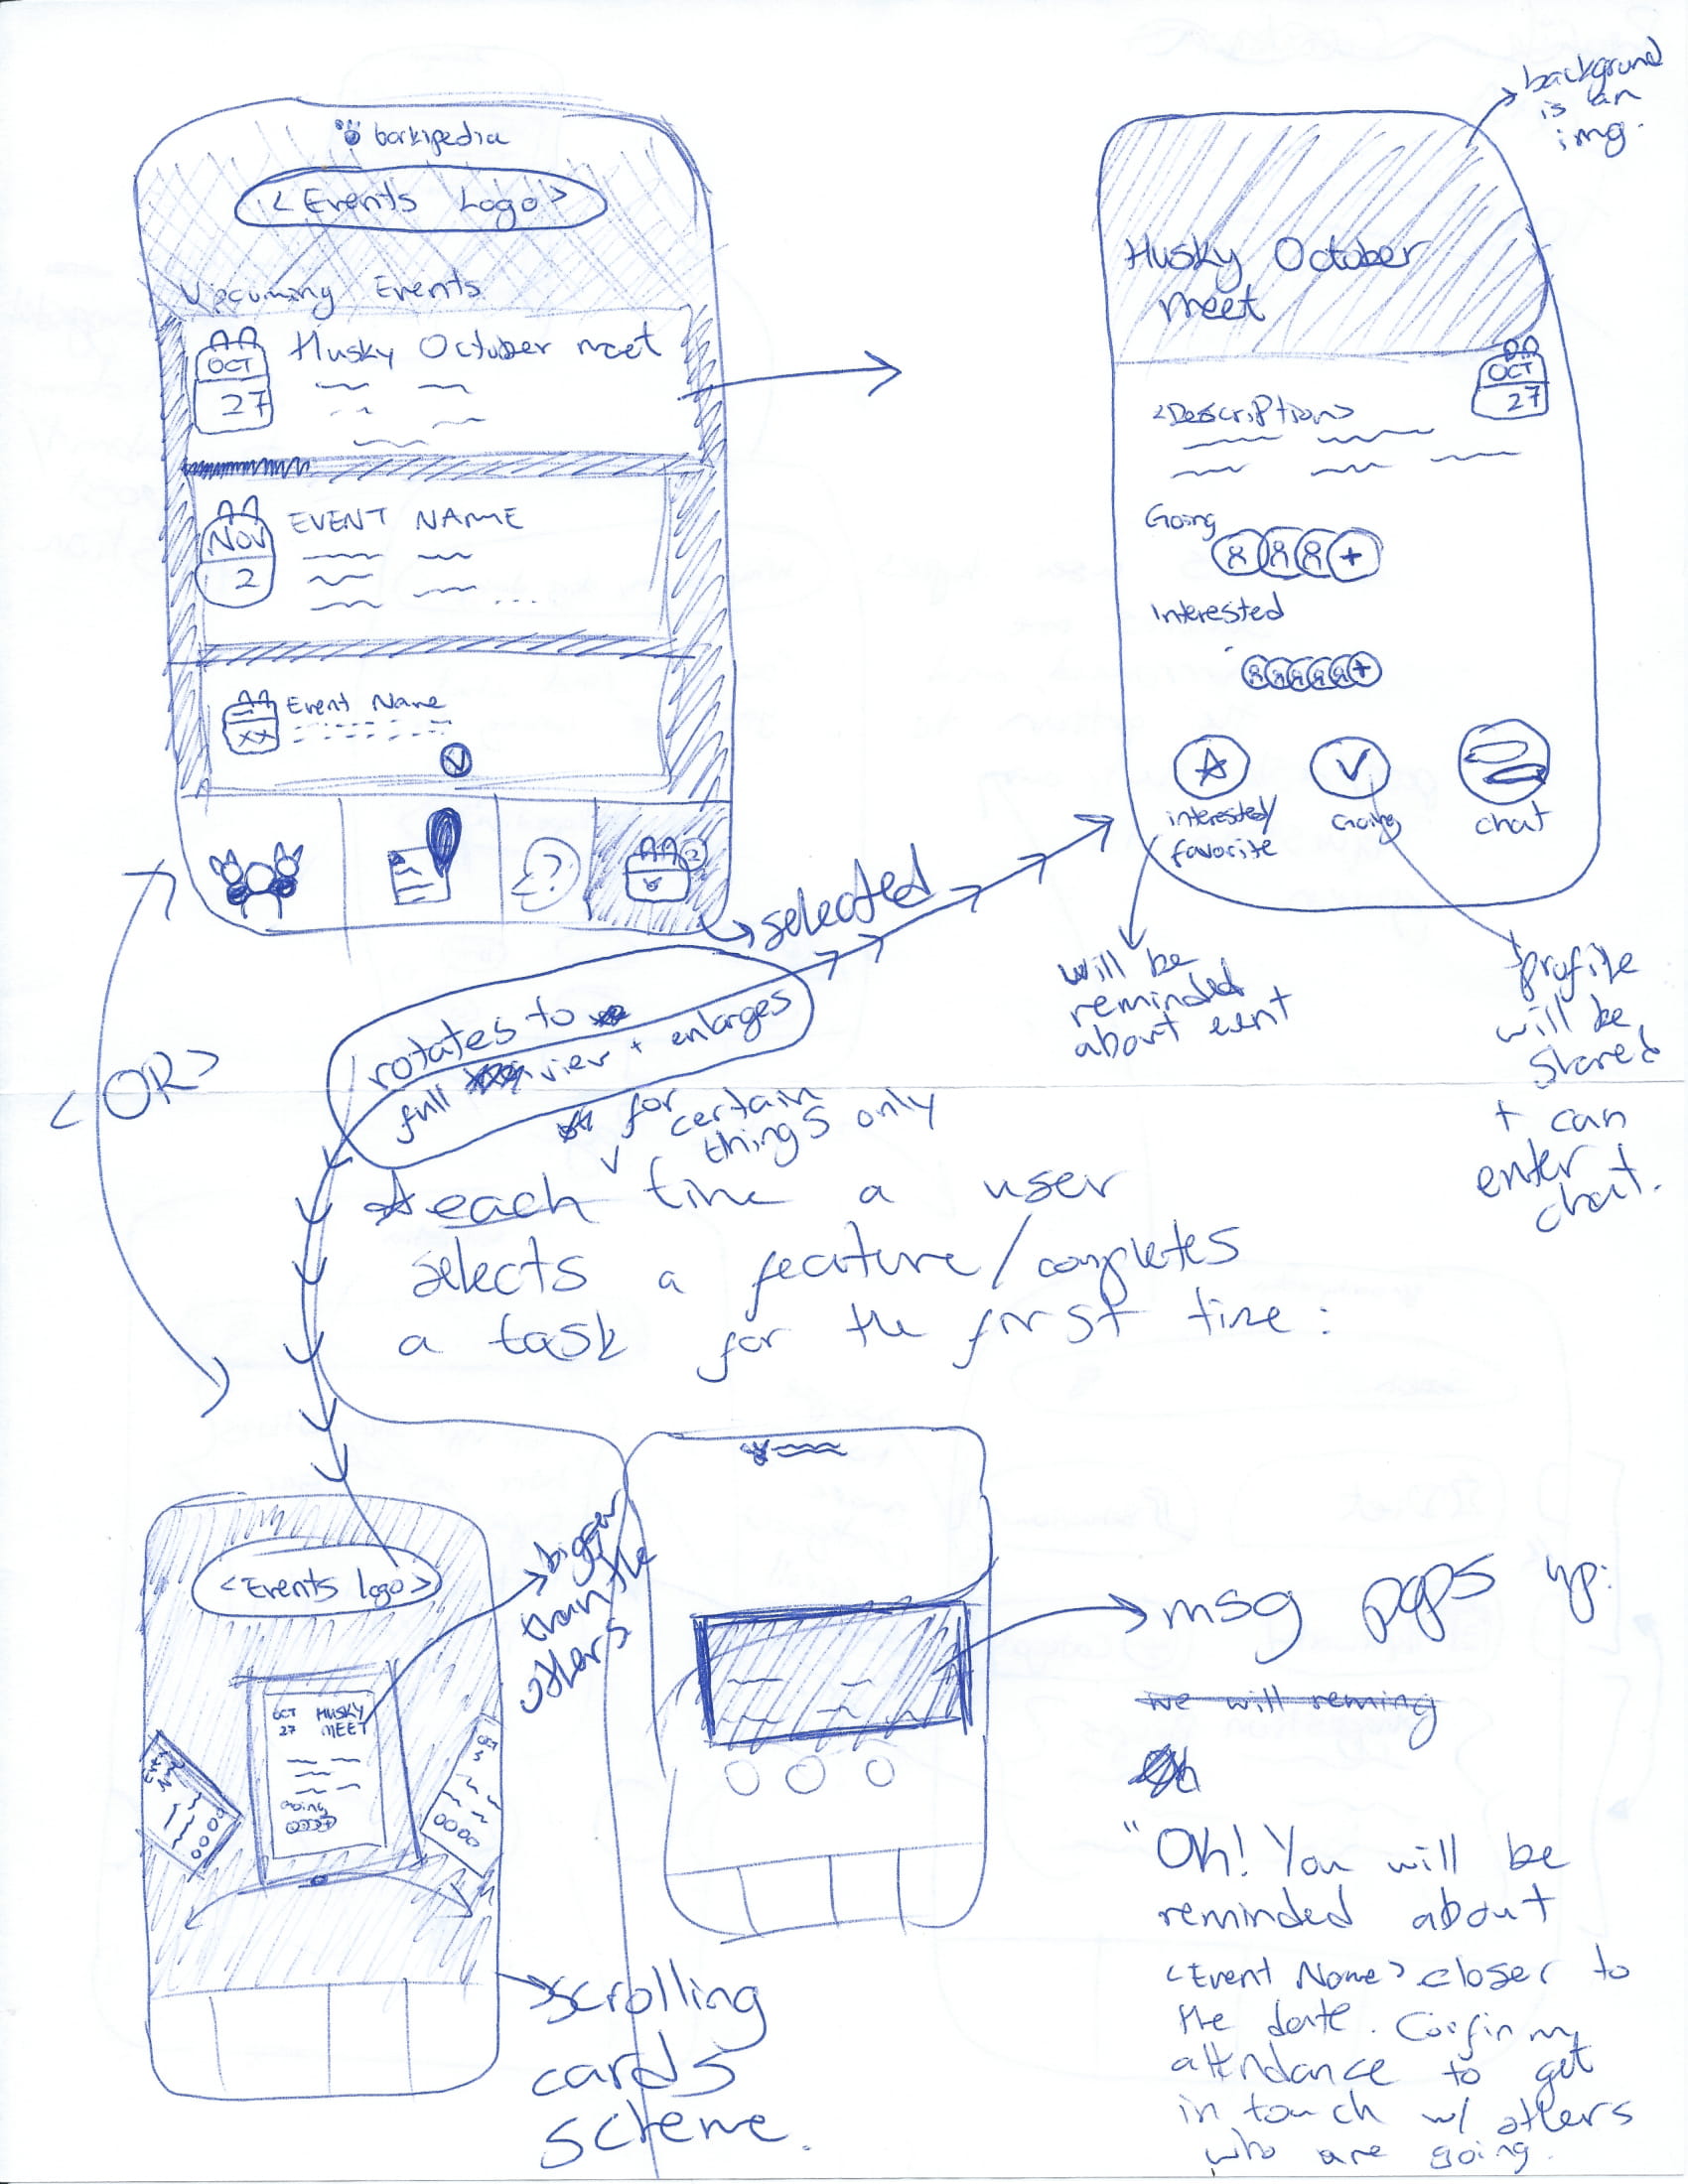 barkipedia
<Events Logo>
Upcoming Events
OCT
27
Husky October meet
NOV
2
EVENT NAME
XX
Event Name
?
2
selected
background
is an
img.
Husky October
meet
OCT
27
<Description>
Going
+
Interested
+
interested/
favorite
Going
chat
will be
reminded
about event
profile
will be
shared
+ can
enter
chat.
<OR>
rotates to
full view + enlarges
for certain
things only
each time a user
selects a feature/completes
a task for the first time:
<Events logo>
OCT
27
HUSKY
MEET
Going
bigger
than the
others
scrolling
cards
scheme.
msg pops up:
we will reming
"Oh! You will be
reminded about
<Event Name> closer to
the date. Confirm
attendance to get
in touch w/ others
who are going.